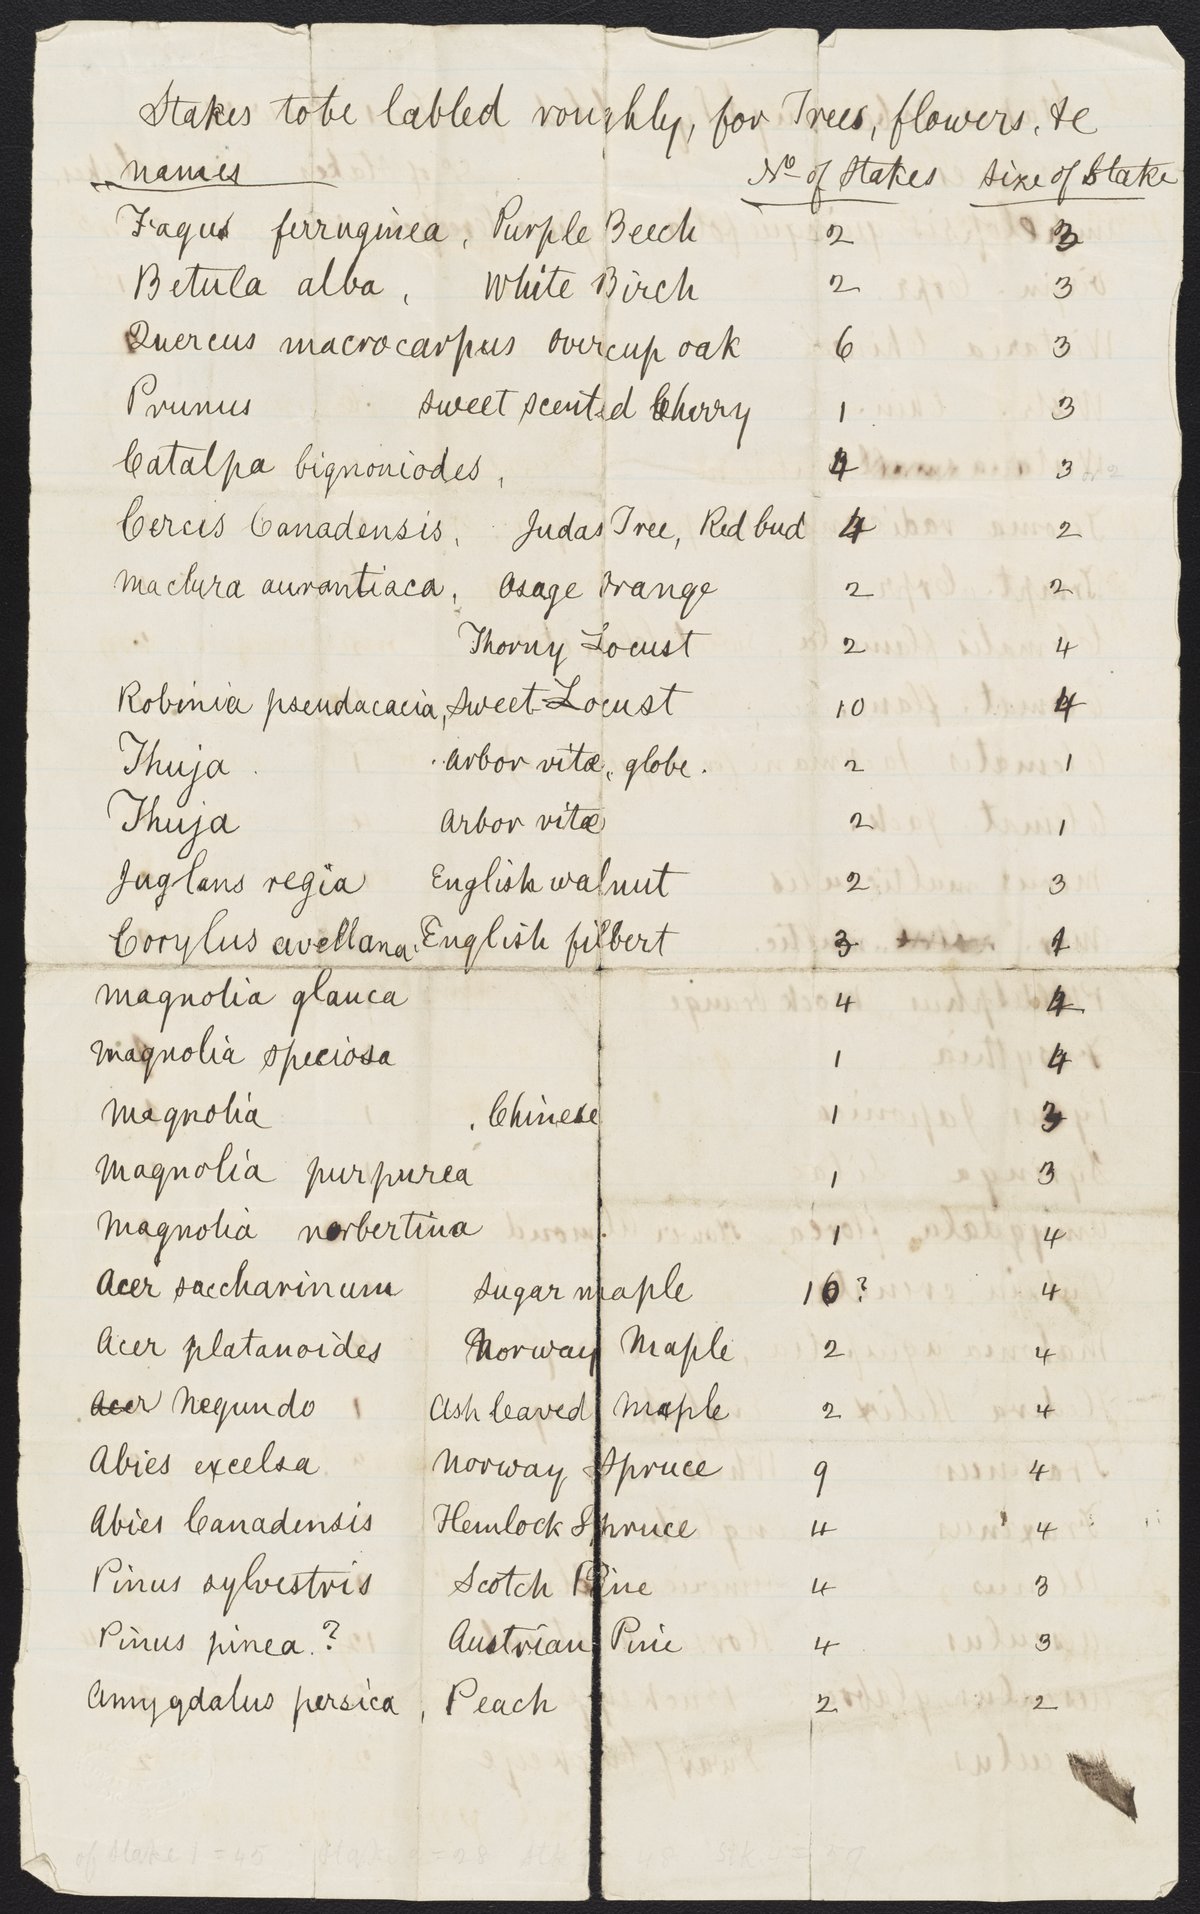 Stakes to be labled roughly, for Trees, flowers, &c
names No of Stakes Size of Stake
Fagus ferruginea, Purple Beech 2 3
Betula alba, White Birch 2 3
Quercus macrocarpus overcup oak 6 3
Prunus sweet scented Cherry 1 3
Catalpa bignoniodes, 4 3 or 2
Cercis Canadensis, Judas Tree, Red bud 4 2
Maclura aurantiaca, Osage Orange 2 2
Thorny Locust 2 4
Robinia pseudacacia, Sweet Locust 10 4
Thuja arbor vitæ, globe. 2 1
Thuja arbor vitæ 2 1
Juglans regia English walnut 2 3
Corylus avellana English filbert 3
Magnolia glauca 4 4
Magnolia speciosa 1 4
Magnolia , Chinese 1 3
Magnolia purpurea 1 3
Magnolia norbertina 1 4
Acer saccharinum Sugar maple 16? 4
Acer platanoides Norway Maple 2 4
Acer Negundo Ash leaved Maple 2 4
Abies excelsa Norway Spruce 9 4
Abies Canadensis Hemlock Spruce 4 4
Pinus sylvestris Scotch Pine 4 3
Pinus pinea.? Austrian Pine 4 3
Amygdalus persica, Peach 2 2